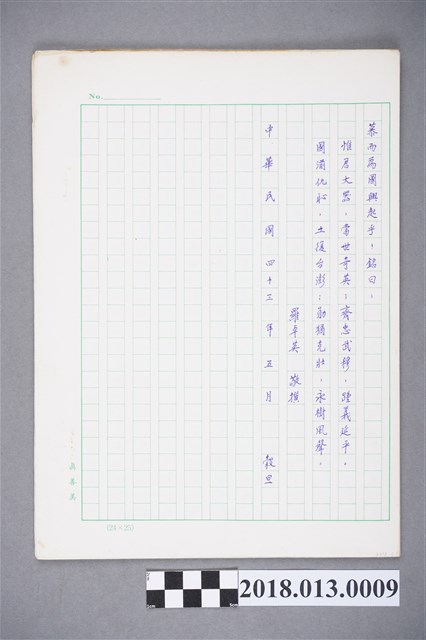 No.
慕而為國興起乎！銘曰：
惟君大器，當世奇英；齊忠武穆，踵義延平。
國湔仇恥，土復台澎；勛猶克壯，永樹風聲。
羅卓英 敬撰
中華民國四十三年五月 穀旦
(24×25)
2018.013.0009